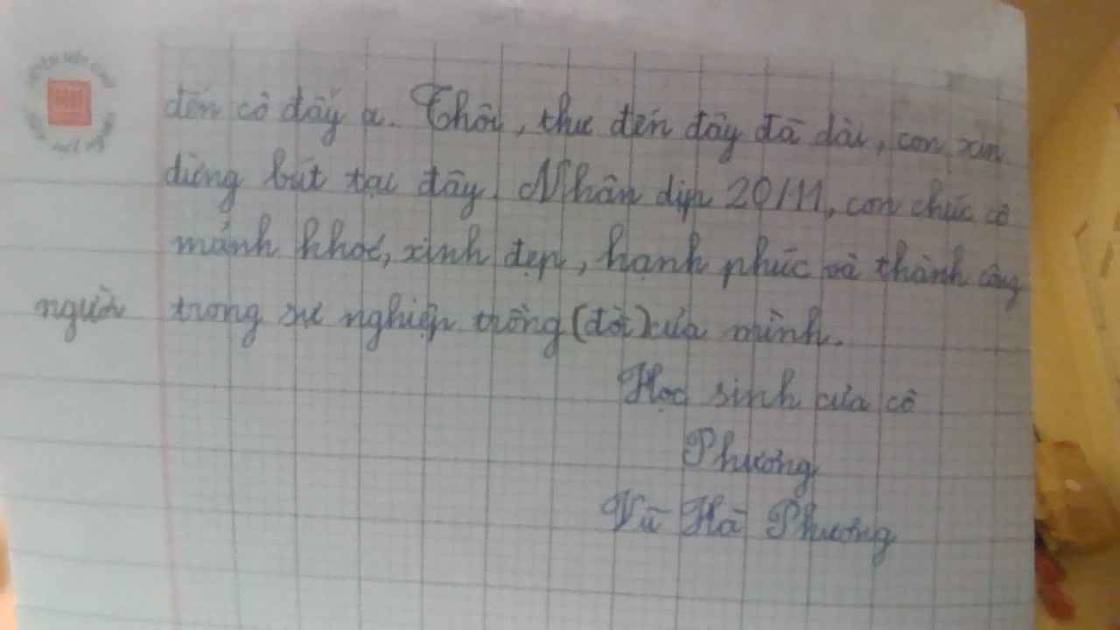 đến cô đấy ạ. Thôi, thư đến đây đã dài, con xin
dừng bút tại đây. Nhân dịp 20/11, con chúc cô
mạnh khoẻ, xinh đẹp, hạnh phúc và thành công
người trong sự nghiệp trồng (đời) của mình.
Học sinh của cô
Phương
Vũ Hà Phương